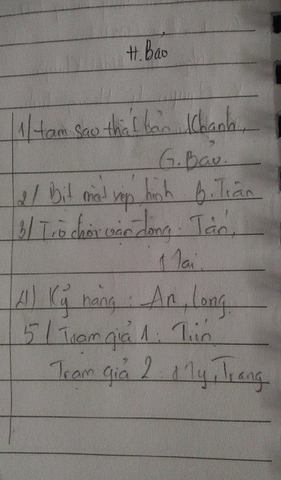 H. Bảo
1/ tam sao thất bản. Khanh,
G. Bảo.
2/ Bịt mắt vẽ hình B. Trân
3/ Trò chơi vận động: Tấn,
Mai.
4/ Kỹ năng: An, Long.
5/ Trạm giả 1: Tiến
Trạm giả 2: My, Trang